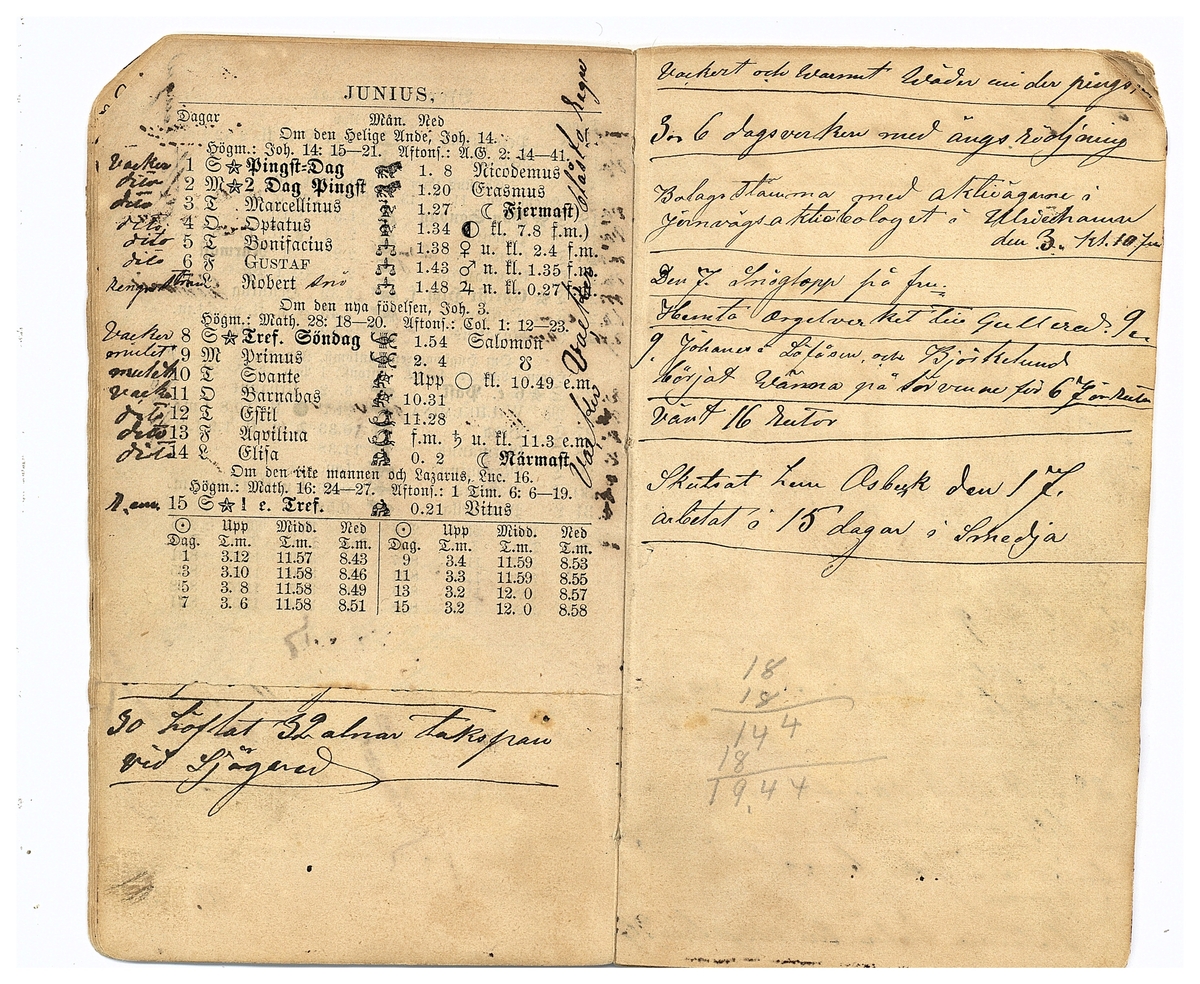 JUNIUS.
Dagar Mån. Ned
Om den Helige Ande, Joh. 14.
Högm.: Joh. 14: 15—21. Aftonſ.: A.G. 2: 14—41
vacker 1 S ☆ Pingſt-Dag 1. 8 Nicodemus
dito 2 M ☆ 2 Dag Pingſt 1.20 Erasmus
dito 3 T Marcellinus 1.27 ☾ Fjermaſt)
dito 4 O Optatus 1.34 kl. 7.8 f.m.)
dito 5 T Bonifacius 1.38 ♀ u. kl. 2.4 f.m.
dito 6 F GUSTAF 1.43 ♂ n. kl. 1.35 f.m.
L Robert snö 1.48 ♃ n. kl. 0.27
Om den nya födelſen, Joh. 3.
Högm.: Math. 28: 18—20. Aftonſ.: Col. 1: 12—23.
vacker 8 S ☆ Tref. Söndag 1.54 Salomon
mulet 9 M Primus 2. 4 ☋
mulet 10 T Svante Upp ○ kl. 10.49 e.m.
11 O Barnabas 10.31
dito 12 T Eſkil 11.28
dito 13 F Aqvilina f.m. ♄ u. kl. 11.3 e.m.
dito 14 L Eliſa 0. 2 ☾ Närmaſt
Om den rike mannen och Lazarus, Luc. 16.
Högm.: Math. 16: 24—27. Aftonſ.: 1 Tim. 6: 6—19.
15 S ☆ 1 e. Tref. 0.21 Vitus
☉ Upp Midd. Ned ☉ Upp Midd. Ned
Dag. T.m. T.m. T.m. Dag. T.m. T.m. T.m.
1 3.12 11.57 8.43 9 3.4 11.59 8.53
3 3.10 11.58 8.46 11 3.3 11.59 8.55
5 3. 8 11.58 8.49 13 3.2 12. 0 8.57
7 3. 6 11.58 8.51 15 3.2 12. 0 8.58
30 höflat 32 alnar takspån
vid Sjögared
Vackert och Warmt Wäder under pings
6 dagsverken med ängs rödjning
Bolags Stämma med aktieägarne i
Jernvägs aktiebolaget i Ulricehamn
den 3. kl. 10 fm
Den 7. Snöglopp på fm.
Hemta Orgelverket
9. Johanes i Löfåsen och Björkelund
börjat 6
16 rutor
Skutsat hem Osbeck den 17.
arbetat i 15 dagar i Smedja
18
18
144
18
1944